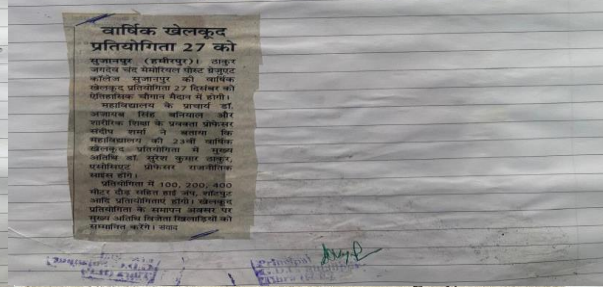 वार्षिक खेलकूद
प्रतियोगिता 27 को
सुजानपुर (हमीरपुर)। ठाकुर
जगदेव चंद मेमोरियल पोस्ट ग्रेजुएट
कॉलेज सुजानपुर की वार्षिक
खेलकूद प्रतियोगिता 27 दिसंबर को
ऐतिहासिक चौगान मैदान में होगी।
महाविद्यालय के प्राचार्य डॉ.
अजायब सिंह बनियाल और
शारीरिक शिक्षा के प्रवक्ता प्रोफेसर
संदीप शर्मा ने बताया कि
महाविद्यालय की 23वीं वार्षिक
खेलकूद प्रतियोगिता में मुख्य
अतिथि डॉ. सुरेश कुमार ठाकुर,
एसोसिएट प्रोफेसर राजनीतिक
साइंस होंगे।
प्रतियोगिता में 100, 200, 400
मीटर दौड़ सहित हाई जंप, शॉटपुट
आदि प्रतियोगिताएं होंगी। खेलकूद
प्रतियोगिता के समापन अवसर पर
मुख्य अतिथि विजेता खिलाड़ियों को
सम्मानित करेंगे। संवाद
Principal